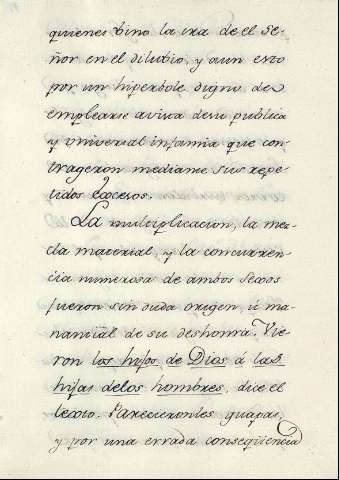 quienes vino la ira de el Se-
ñor en el dilubio, y aun esto
por un hiperbole digno de
emplearse avisa de su publica
y universal infamia que con-
trageron mediante sus repe-
tidos excesos.
La multiplicacion, la mez-
cla material, y la concurren-
cia numerosa de ambos sexos
fueron sin duda origen, ú ma-
nantial de su deshonra. Vie-
ron los hijos de Dios á las
hijas delos hombres, dice el
texto. Parecieronles guapas,
y por una errada conseqüencia